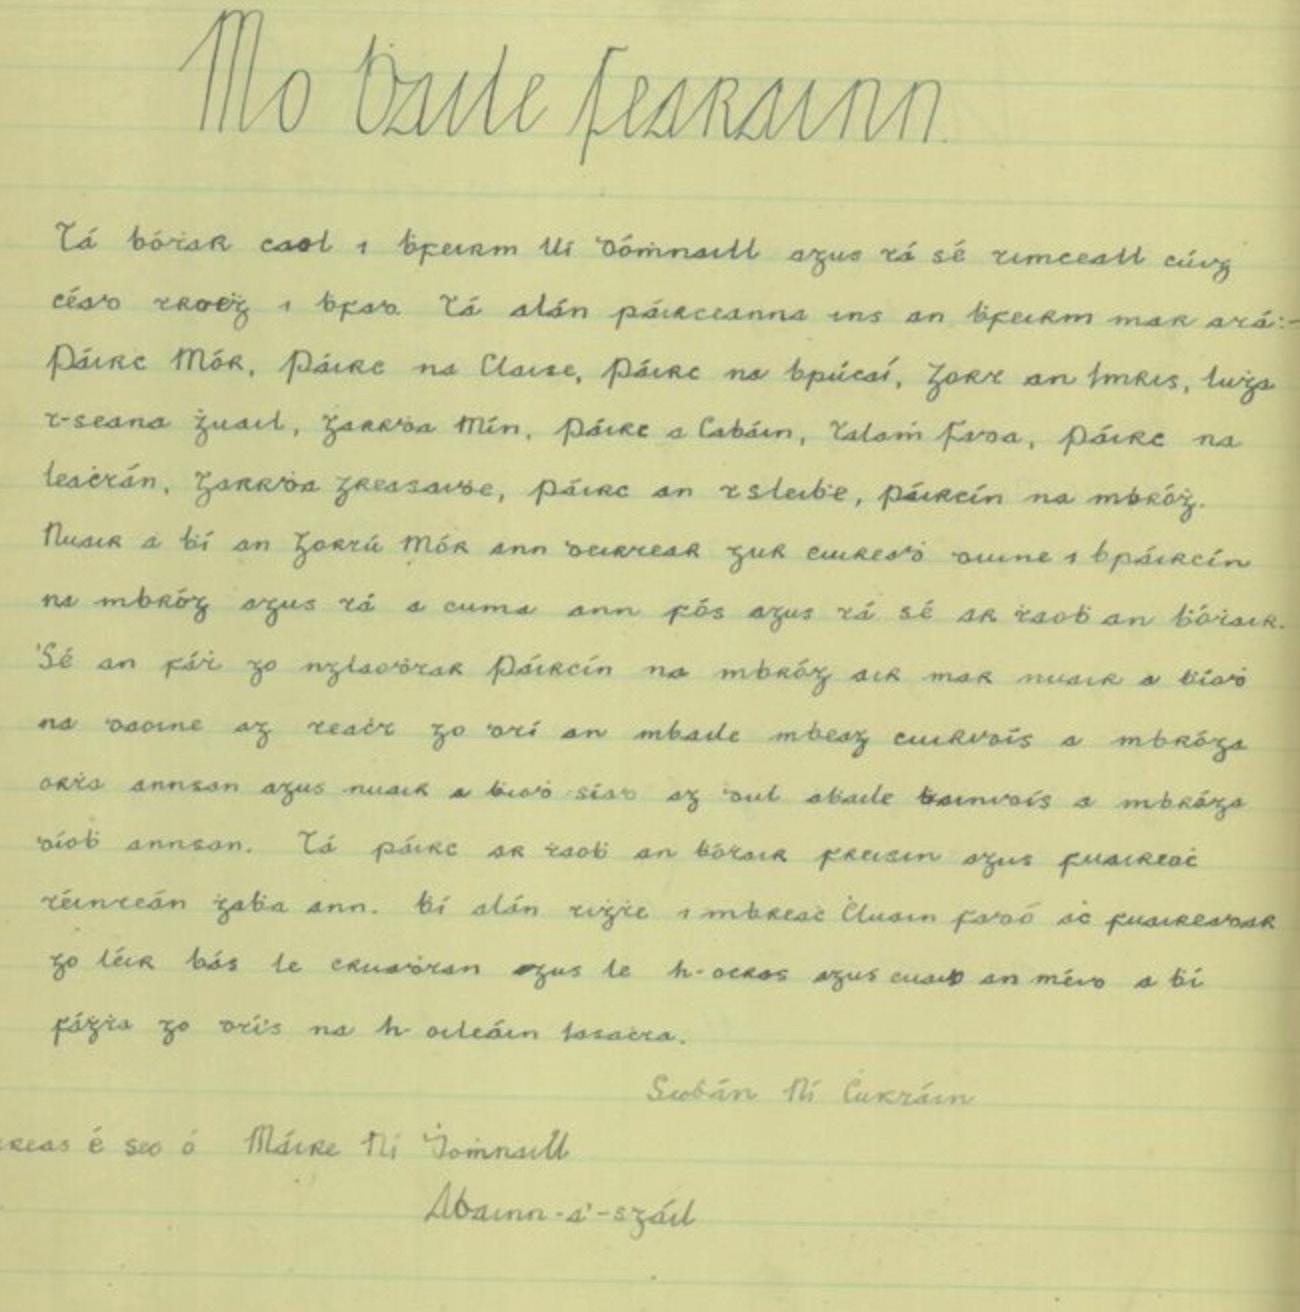 Mo Ḃaile Fearainn.
Tá bóṫar caol i ḃfeirm Uí Ḋómnaill agus tá sé timceall cúig
céad troiġ i ḃfad. Tá alán páirceanna ins an ḃfeirm mar atá:-
Páirc Mór, Páirc na Claise, Páirc na bpúcaí, Gort an Imris, Luġa
t-seana ġuail, Garrḋa Mín, Páirc a Cabáin, Talaṁ Fada, Páirc na
leaċtán, Garrḋa greasaiḋe, Páirc an tsleiḃe, Páircín na mbróg.
Nuair a ḃí an Gortú Mór ann deirtear gur cuireaḋ duine i bpáircín
na mbróg agus tá a cuma ann fós agus tá sé ar ṫaoḃ an ḃóṫair.
'Sé an fáṫ go nglaoḋtar Páircín na mbróg air mar nuair a ḃíoḋ
na daoine ag teaċt go dtí an mbaile mbeag cuirdís a mbróga
orṫa annsan agus nuair a ḃíoḋ siad ag dul abaile ḃainidís a mbróga
díoḃ annsan. Tá páirc ar ṫaoḃ an ḃóṫair freisin agus fuaireaḋ
téinteán gaḃa ann. Ḃí alán tiġṫe i mbreaċ Ċluain fadó aċ fuaireadar
go léir bás le cruaḋtan agus le h-ocras agus cuaiḋ an méid a ḃí
fágṫa go dtís na h-oileáin lasaċra.
Siobán Ní Ċurráin
é seo ó Máire Ní Ḋoṁnaill
Abainn-a'-sgáil